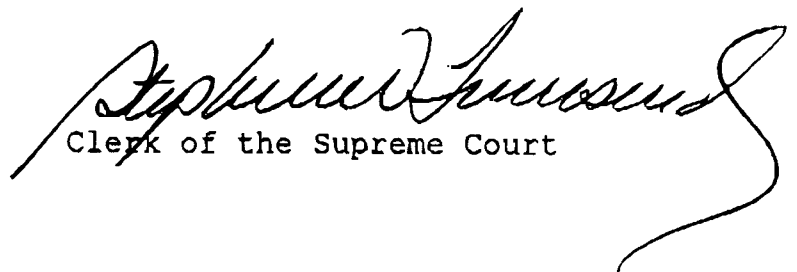 Stephen W. Townsend
Clerk of the Supreme Court